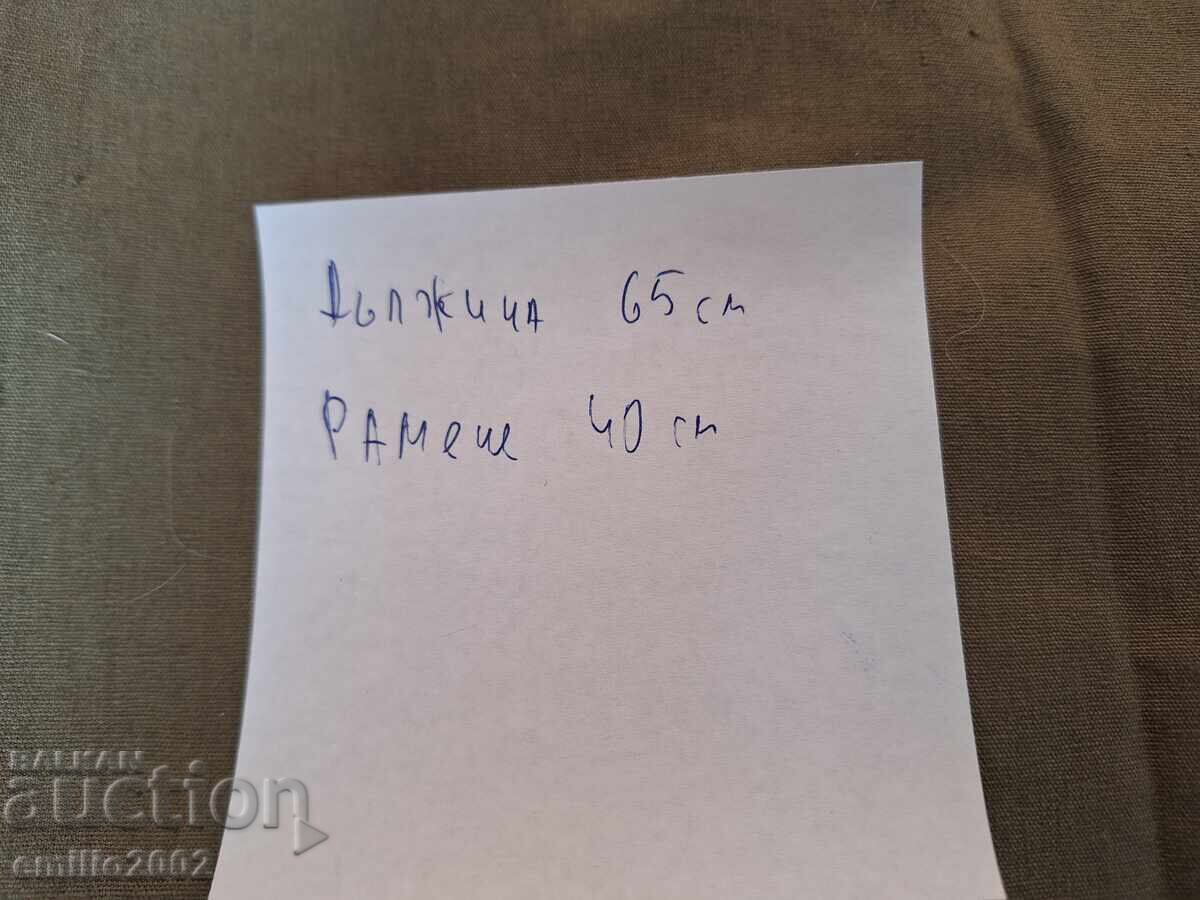 Дължина 65 см
РАМене 40 см
BALKAN
auction
emilio2002